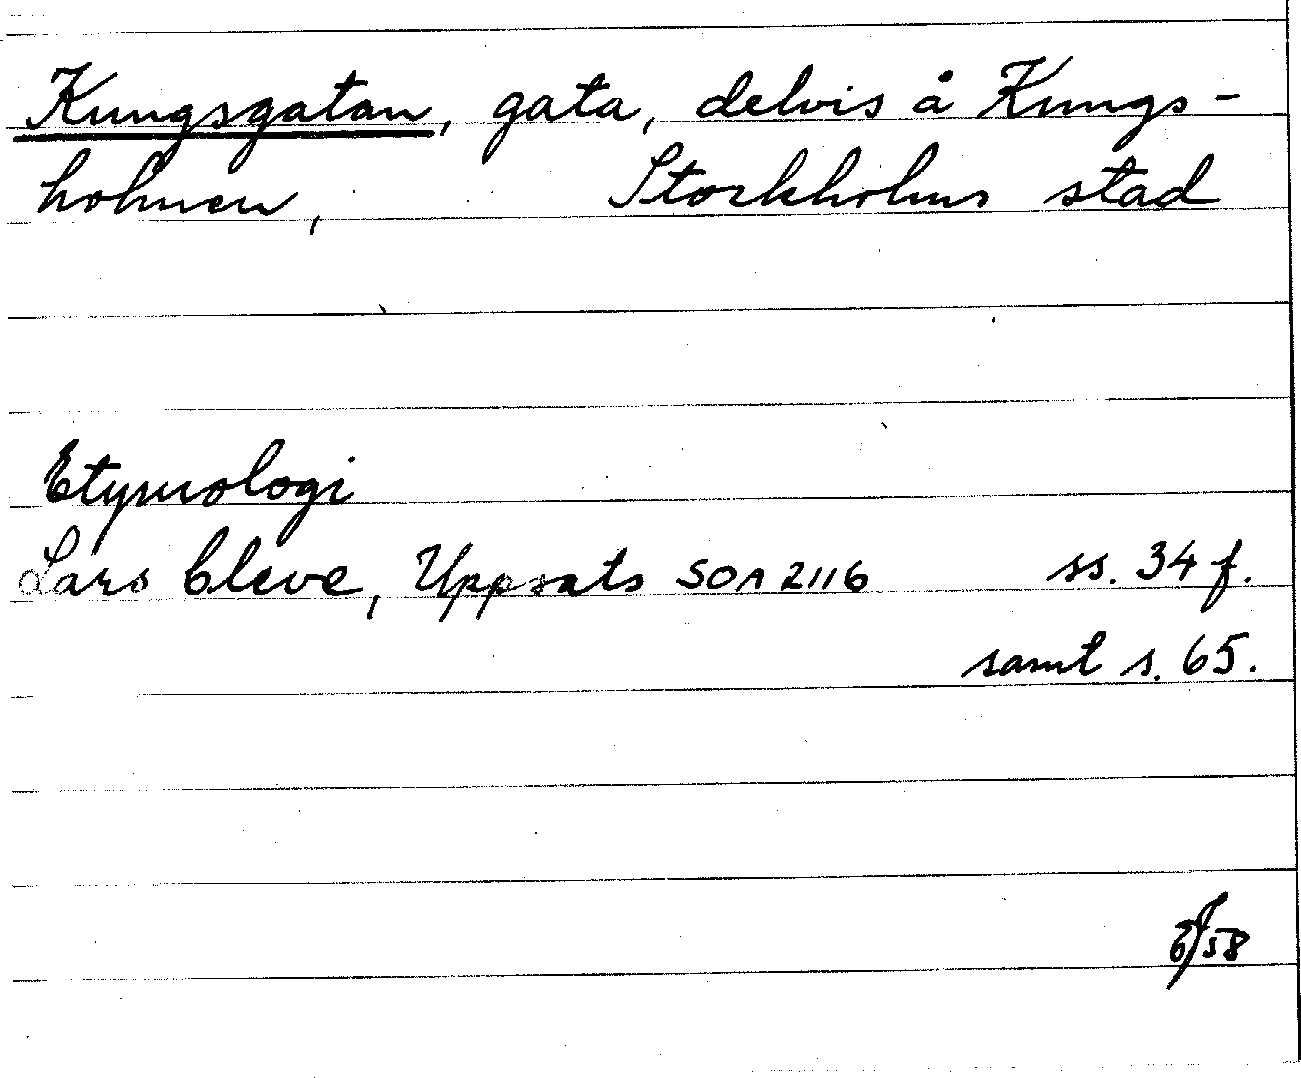 Kungsgatan, gata, delvis å Kungs-
holmen, Stockholms stad
Etymologi
Lars Cleve, Uppsats SOA 2116 ss. 34 f.
samt s. 65.